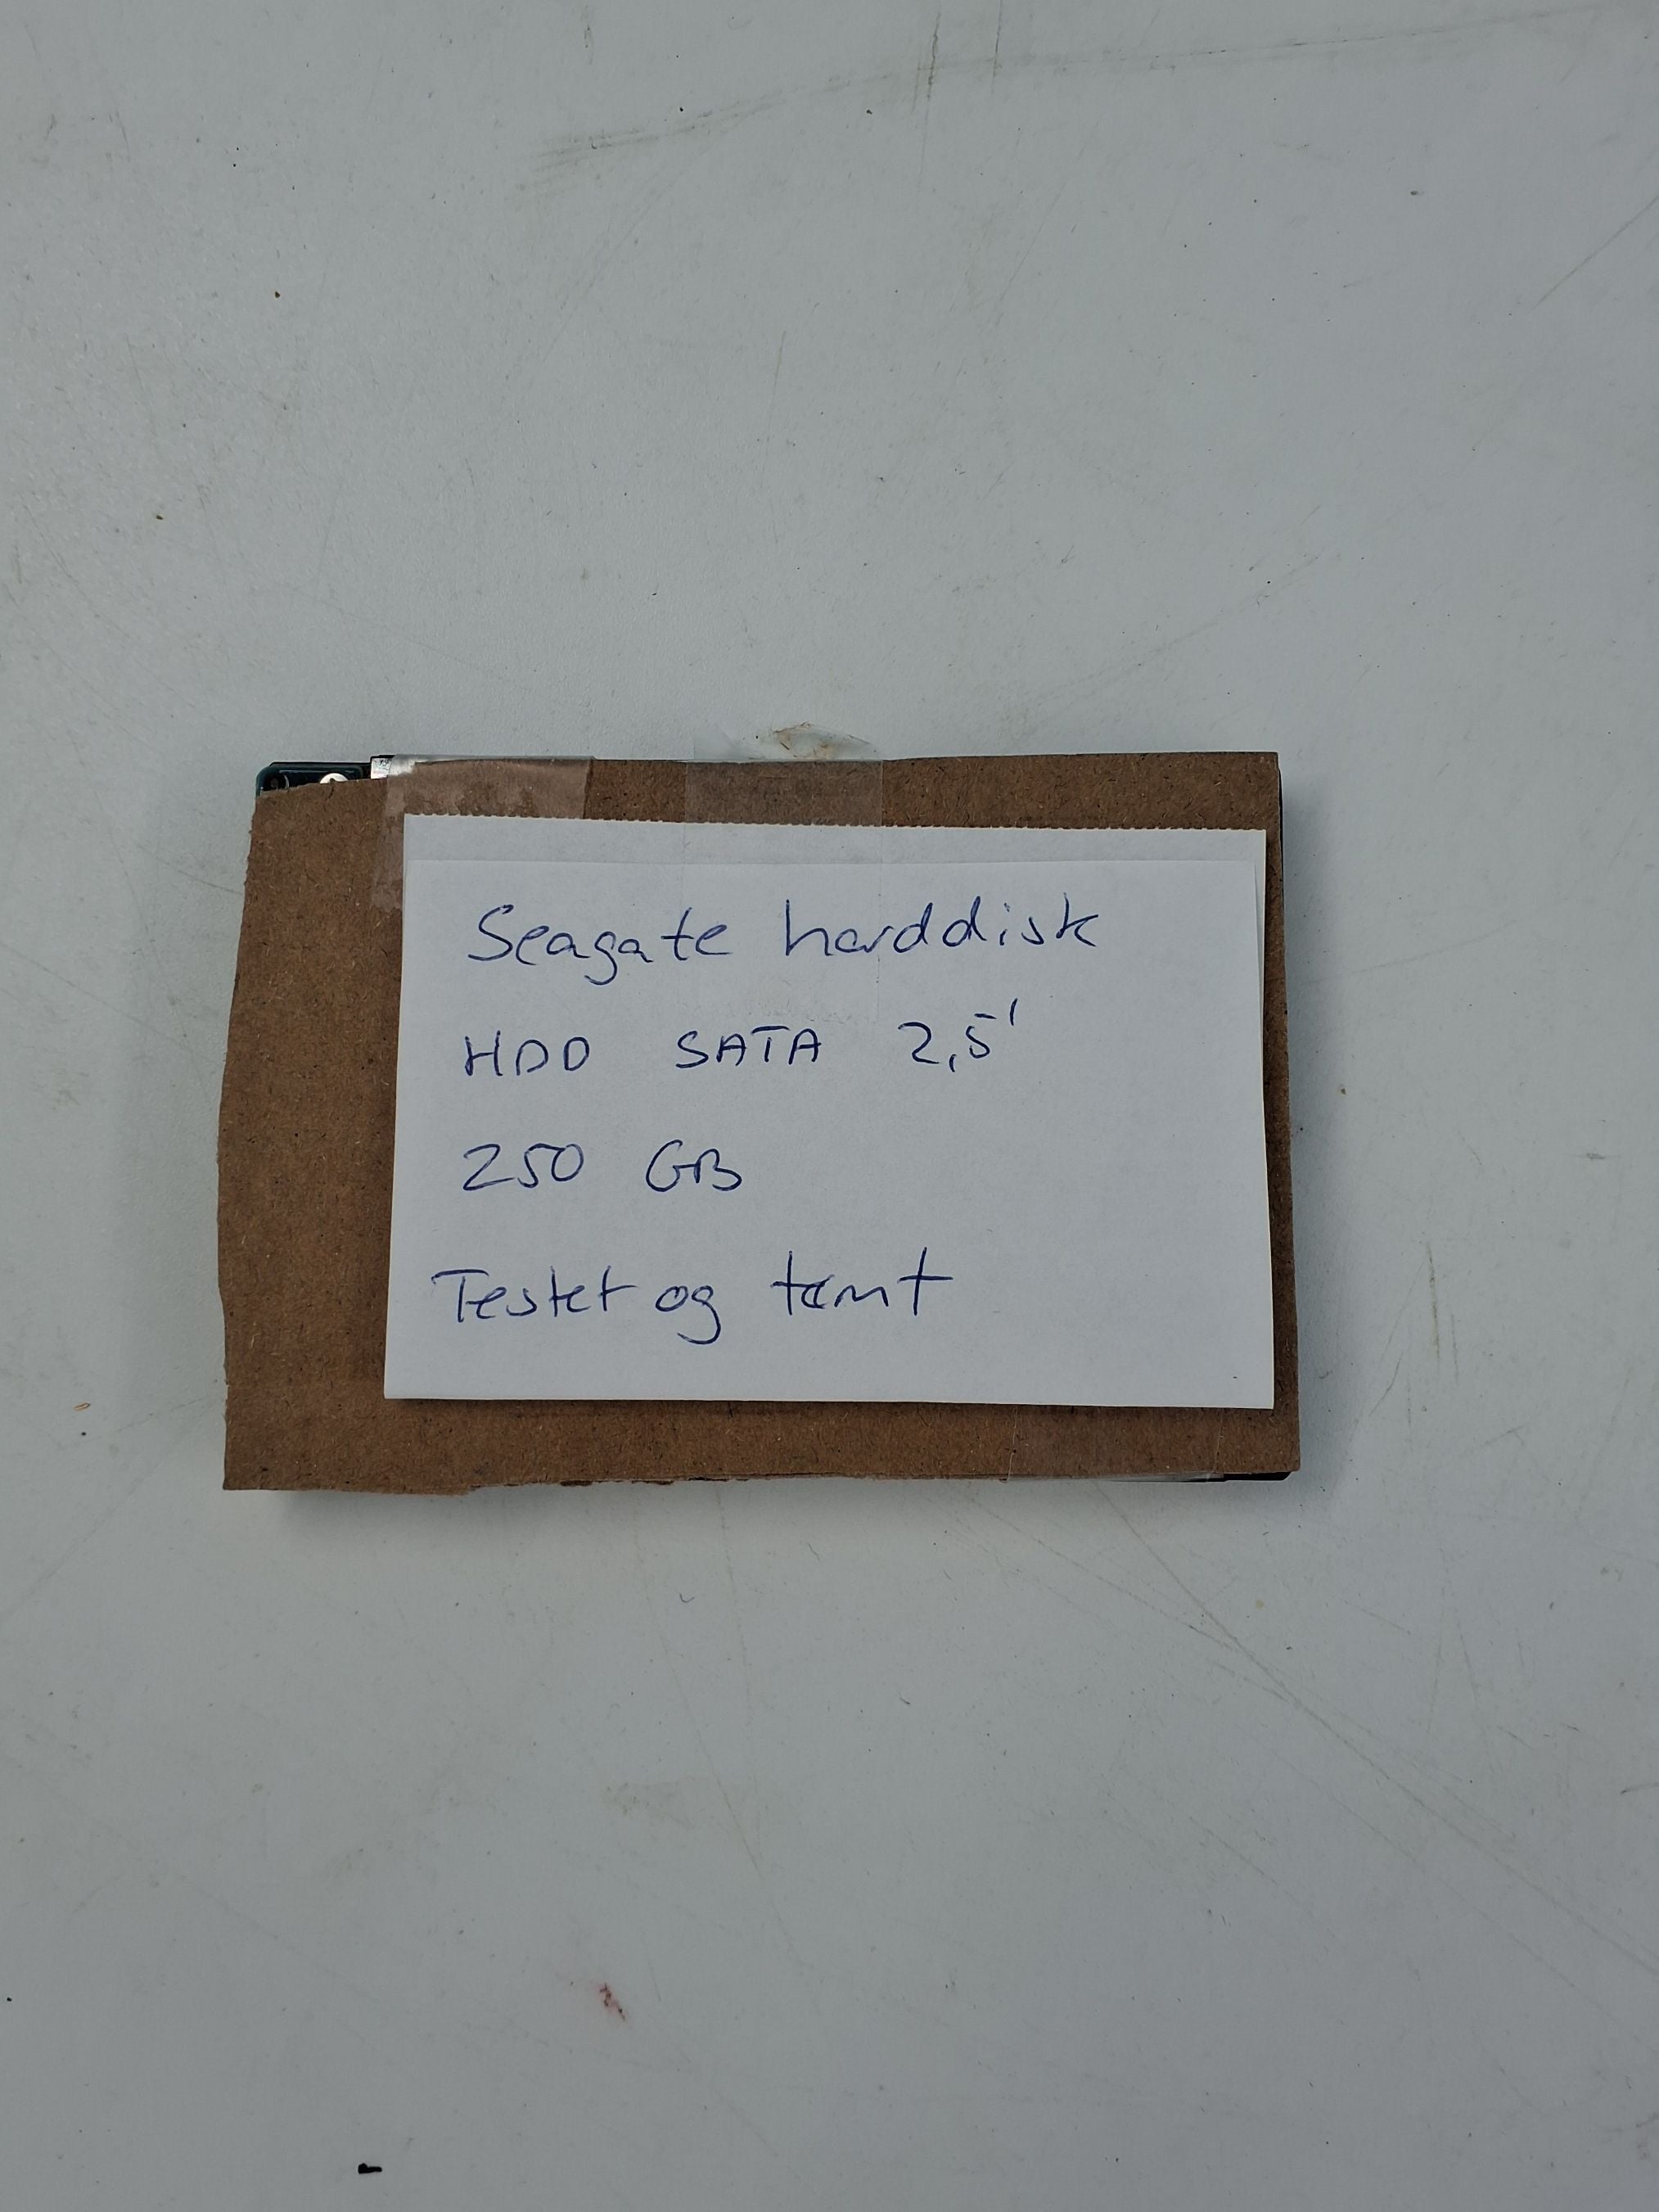 Seagate harddisk
HDD SATA 2,5'
250 GB
Testet og tømt